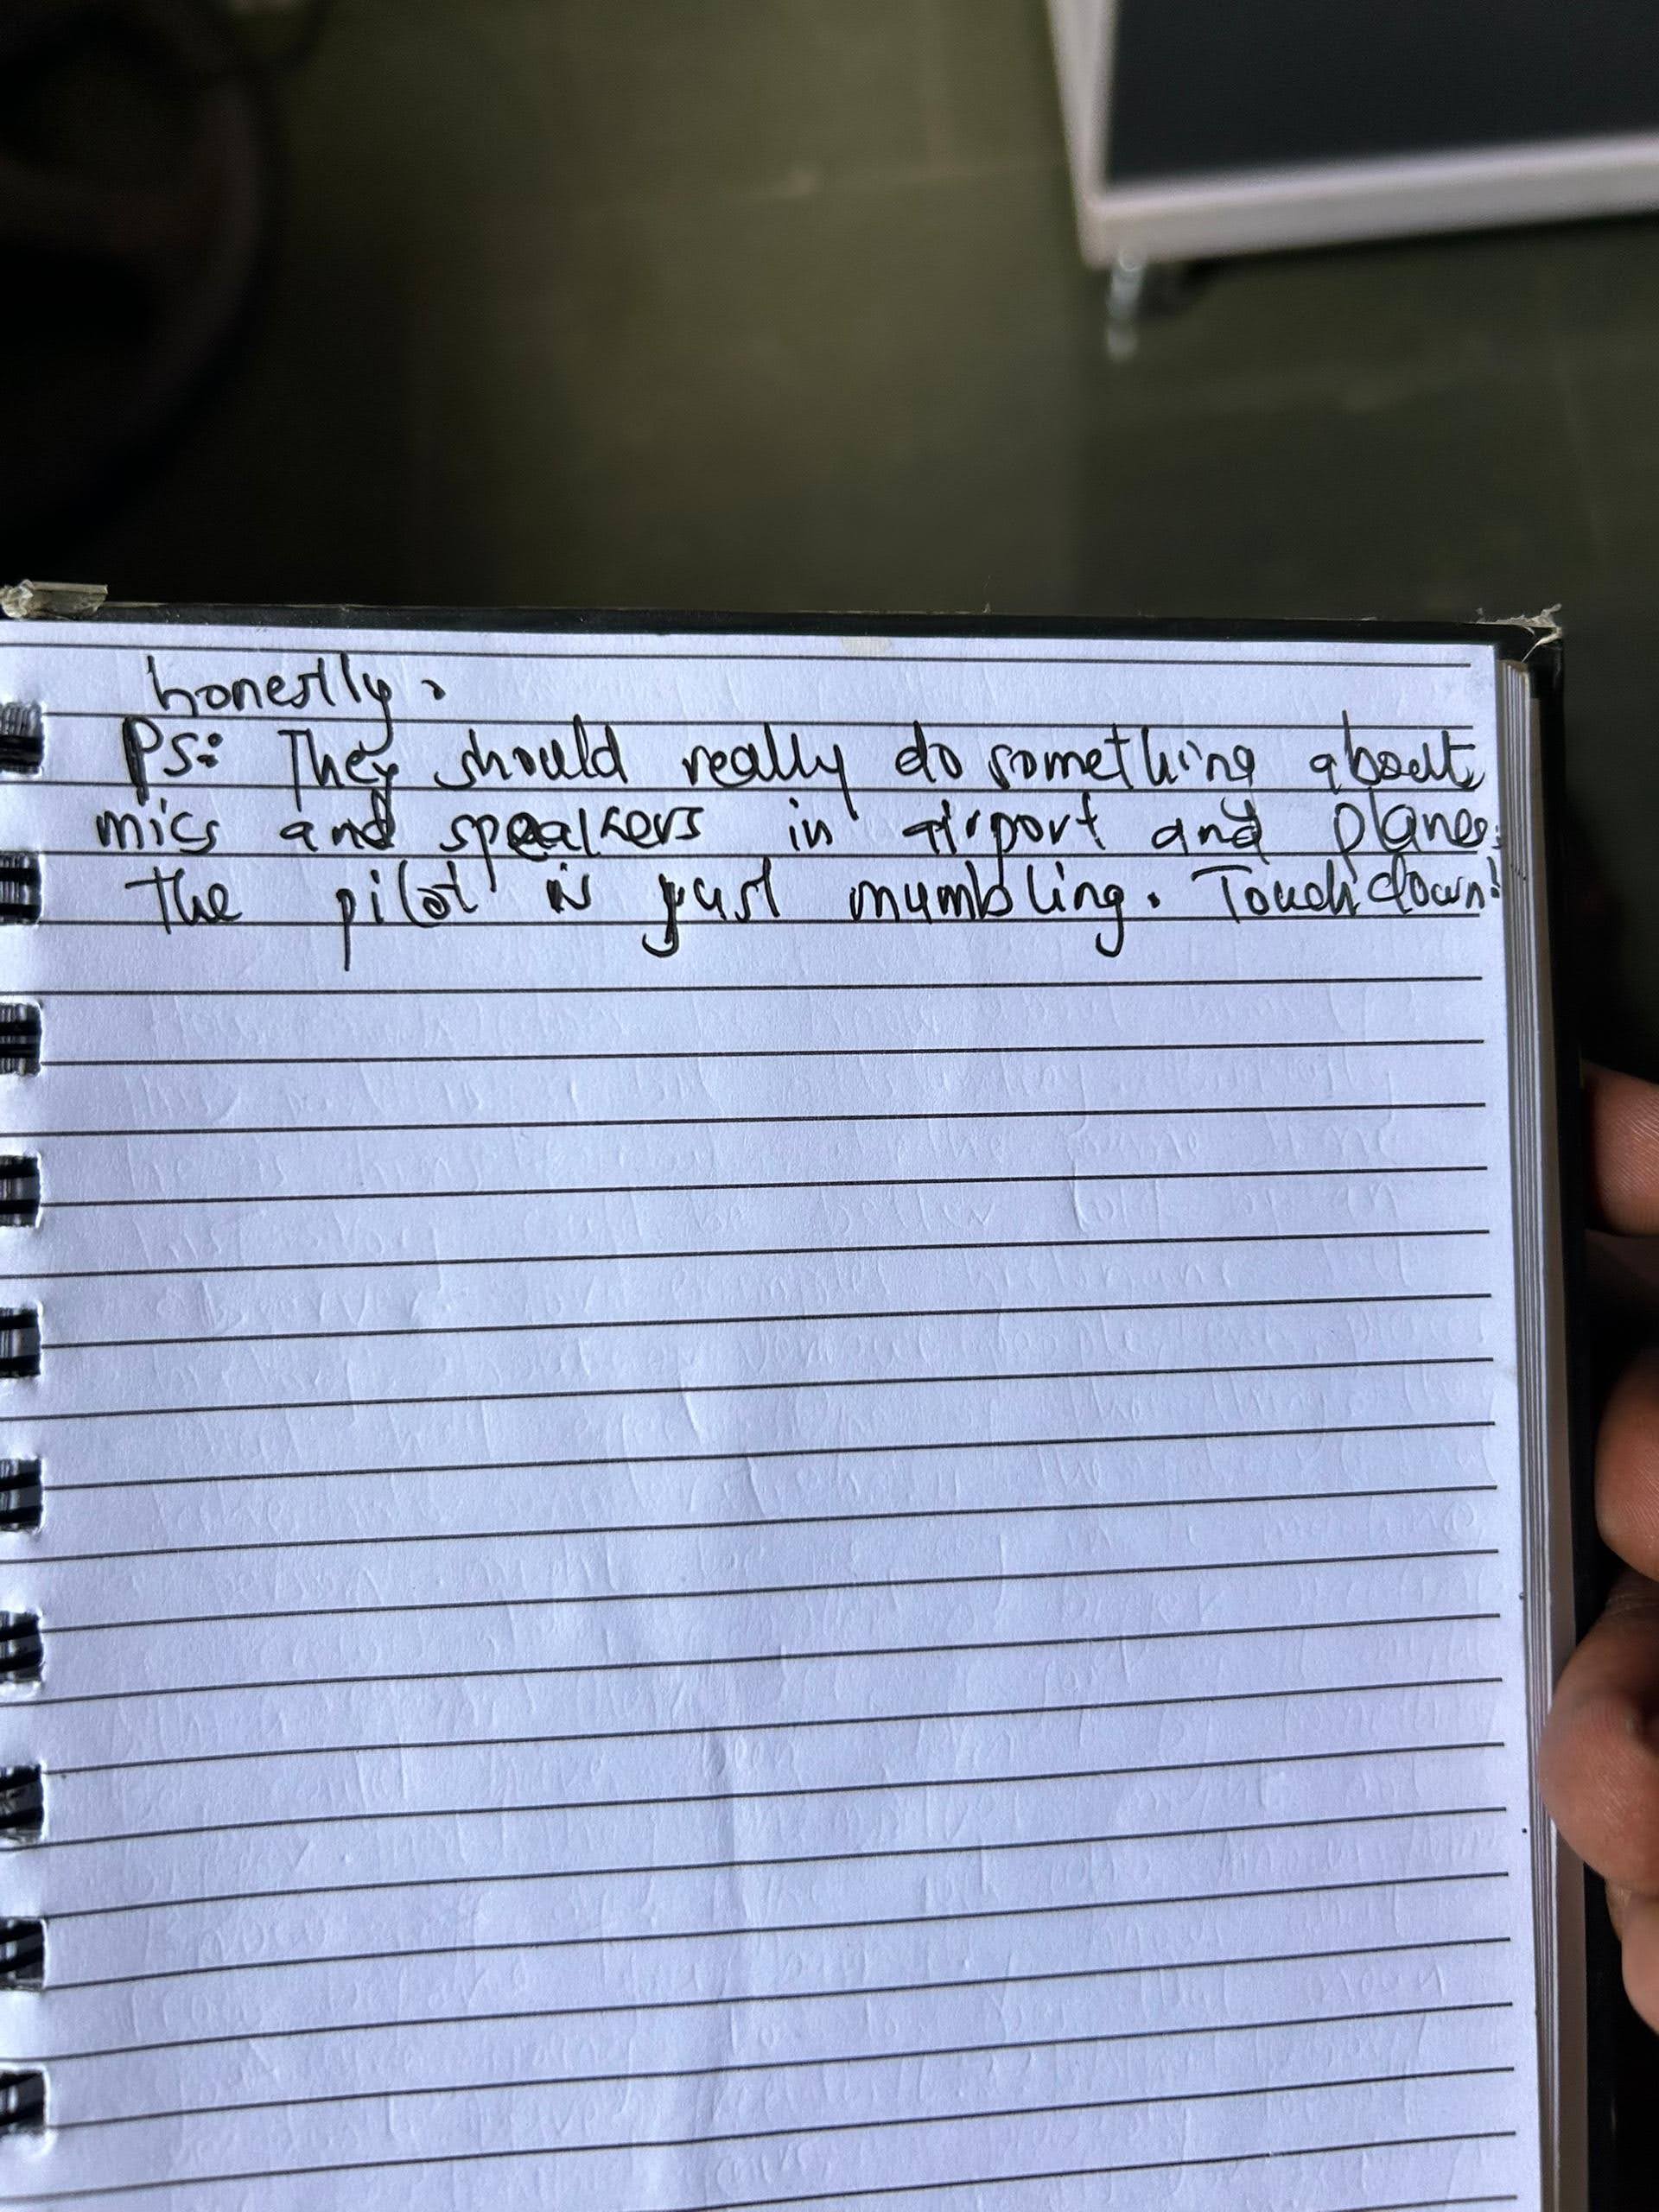 honestly.
PS: They should really do something about
mics and speakers in airport and planes.
the pilot is just mumbling. Touchdown!